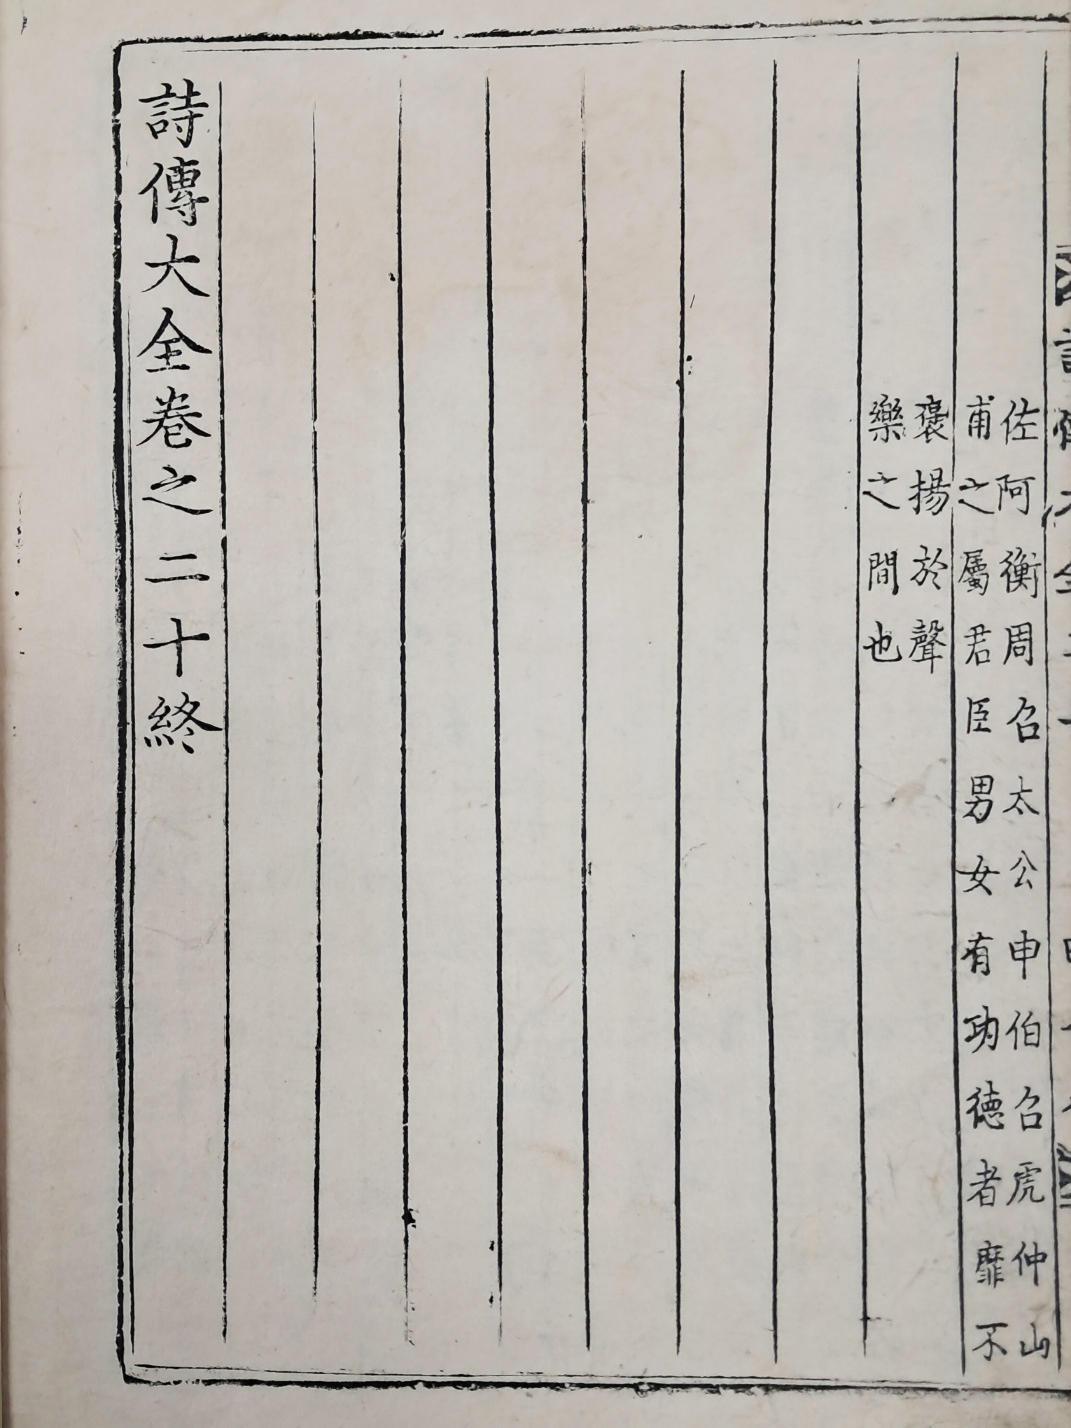 佐阿衡周召太公申伯召虎仲山
甫之屬君臣男女有功德者靡不
褒揚於聲
樂之間也
詩傳大全卷之二十終